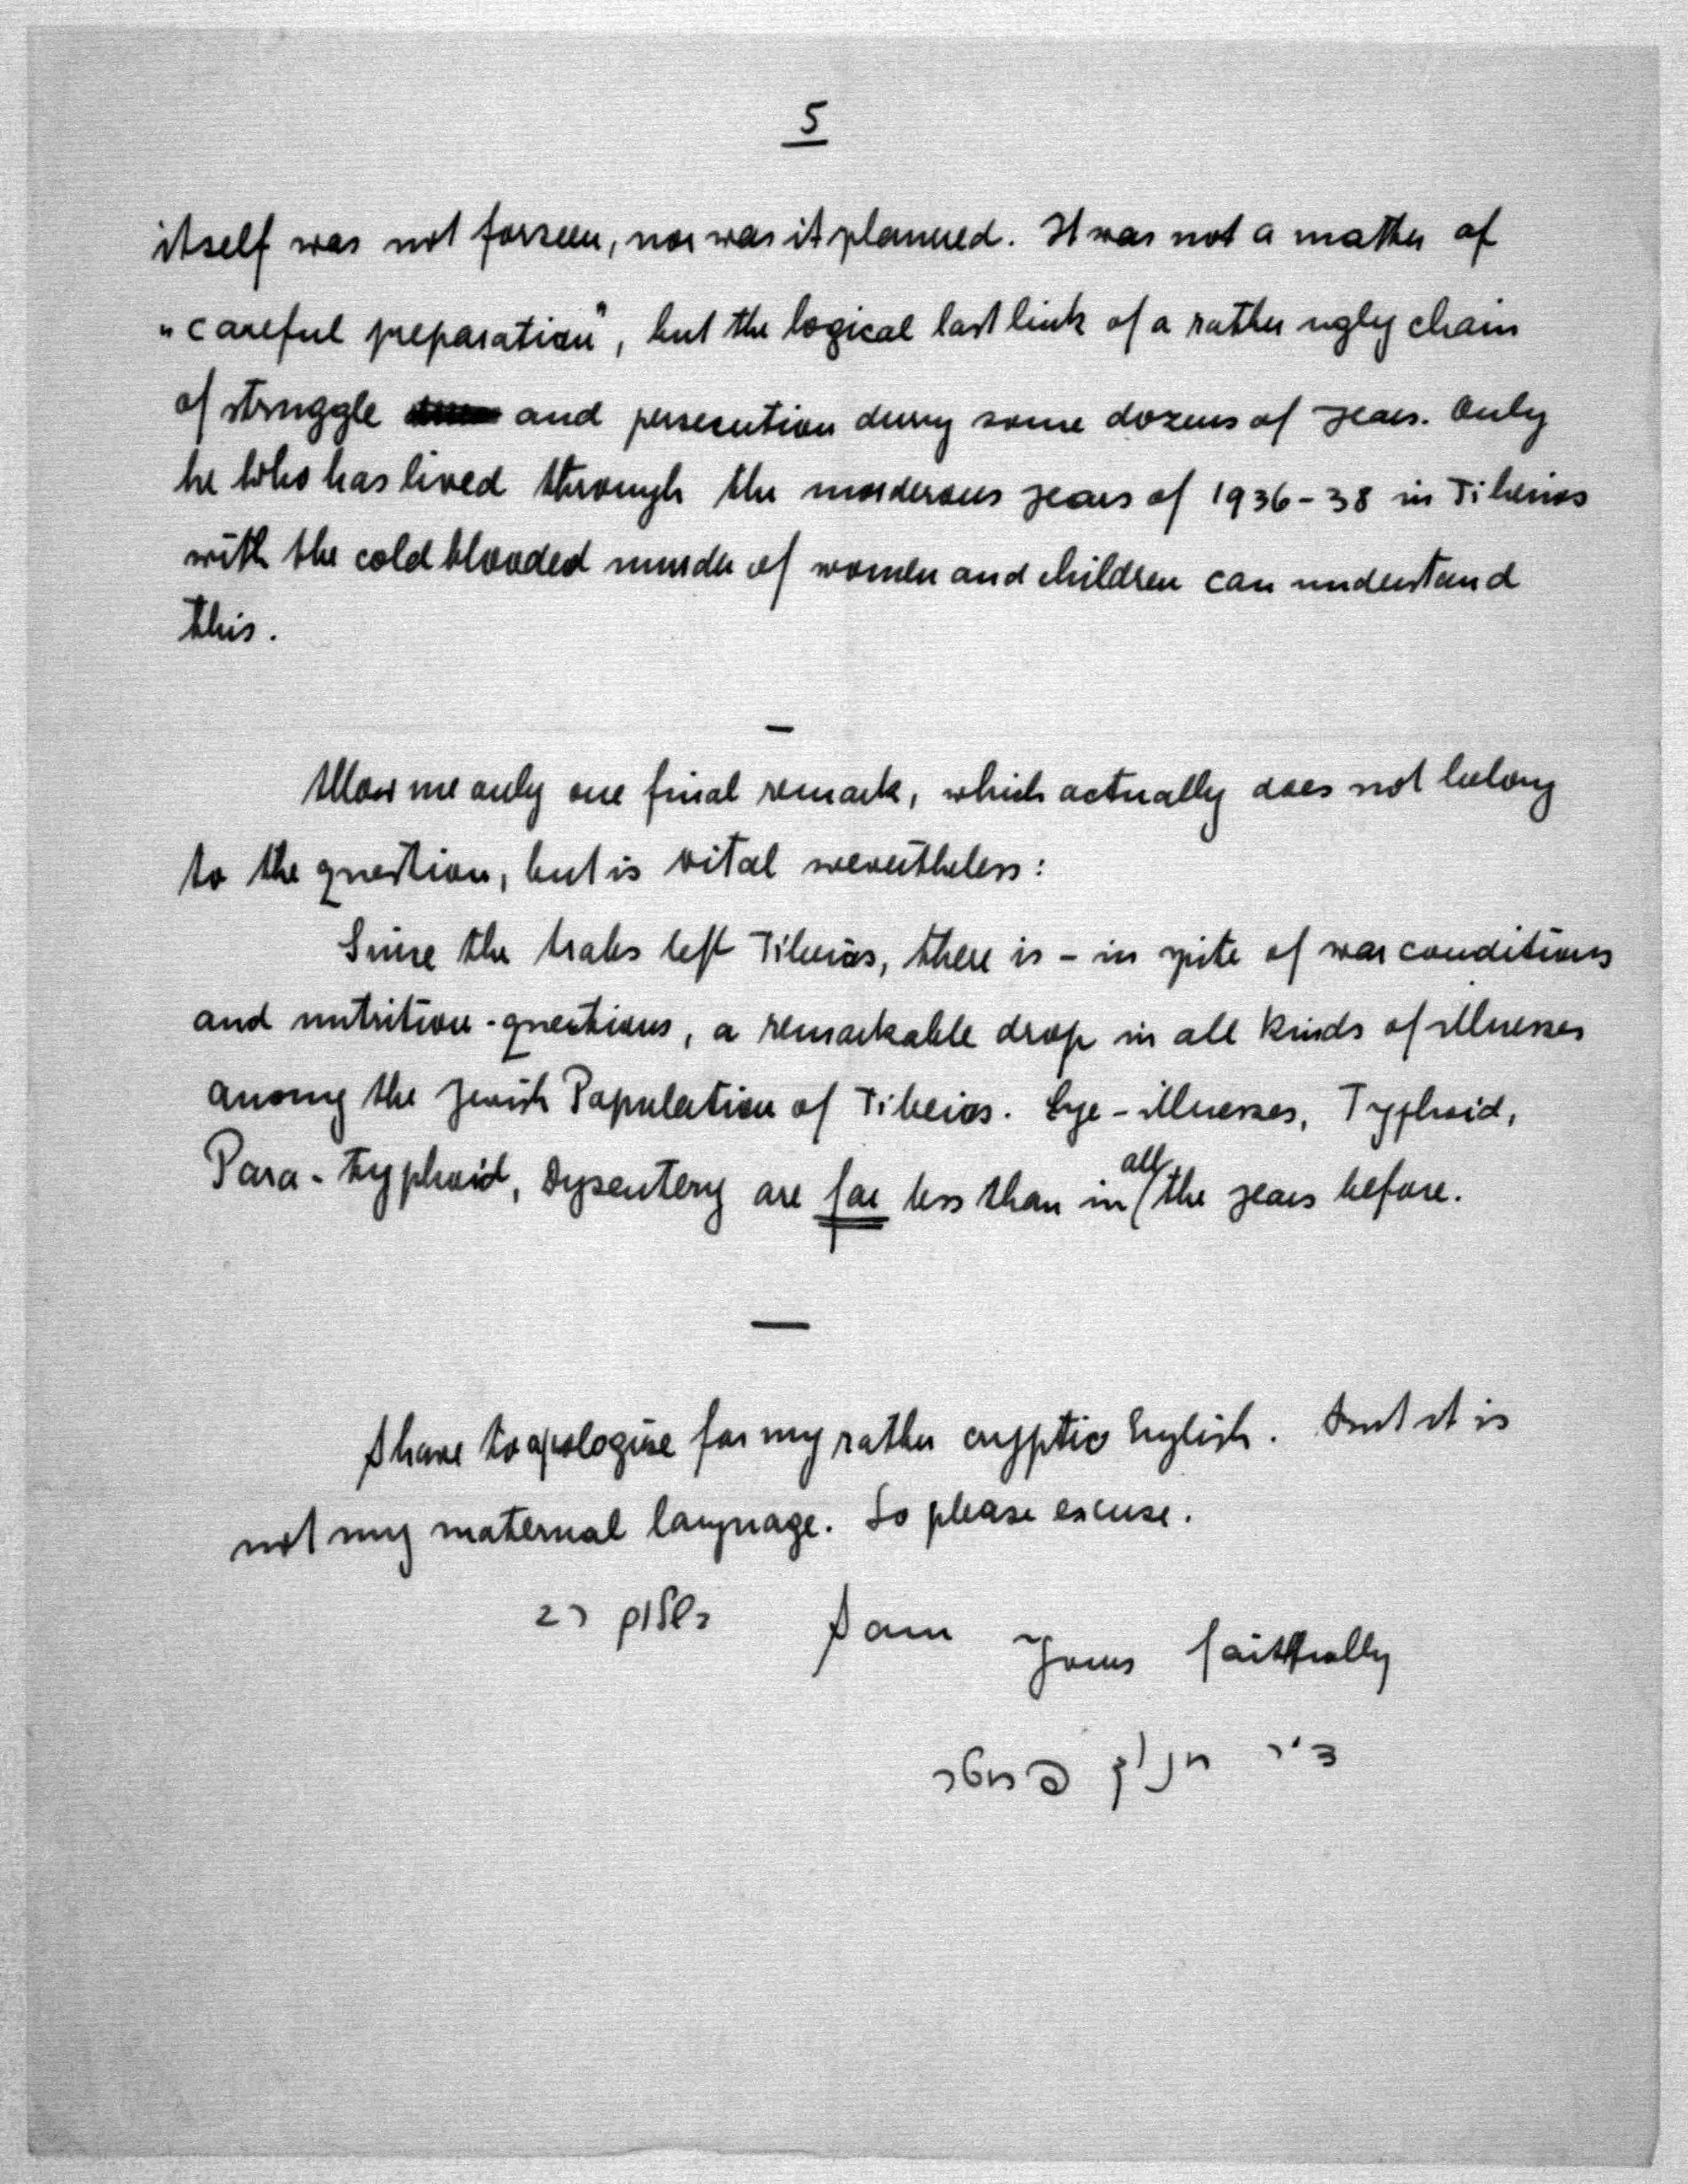 5
itself was not forseen, nor was it planned. It was not a matter of
„careful preparation", but the logical last link of a rather ugly chain
of struggle and persecution during some dozens of years. Only
he who has lived through the murderous years of 1936-38 in Tiberias
with the cold blooded murder of women and children can understand
this.
—
Allow me only one final remark, which actually does not belong
to the question, but is vital nevertheless:
Since the Arabs left Tiberias, there is - in spite of war conditions
and nutrition-questions, a remarkable drop in all kinds of illnesses
among the Jewish Population of Tiberias. Eye-illnesses, Typhoid,
Para-typhoid, Dysentery are far less than in all the years before.
—
I have to apologise for my rather cryptic English. But it is
not my maternal language. So please excuse.
בשלום רב I am Yours faithfully
ד"ר חנוך